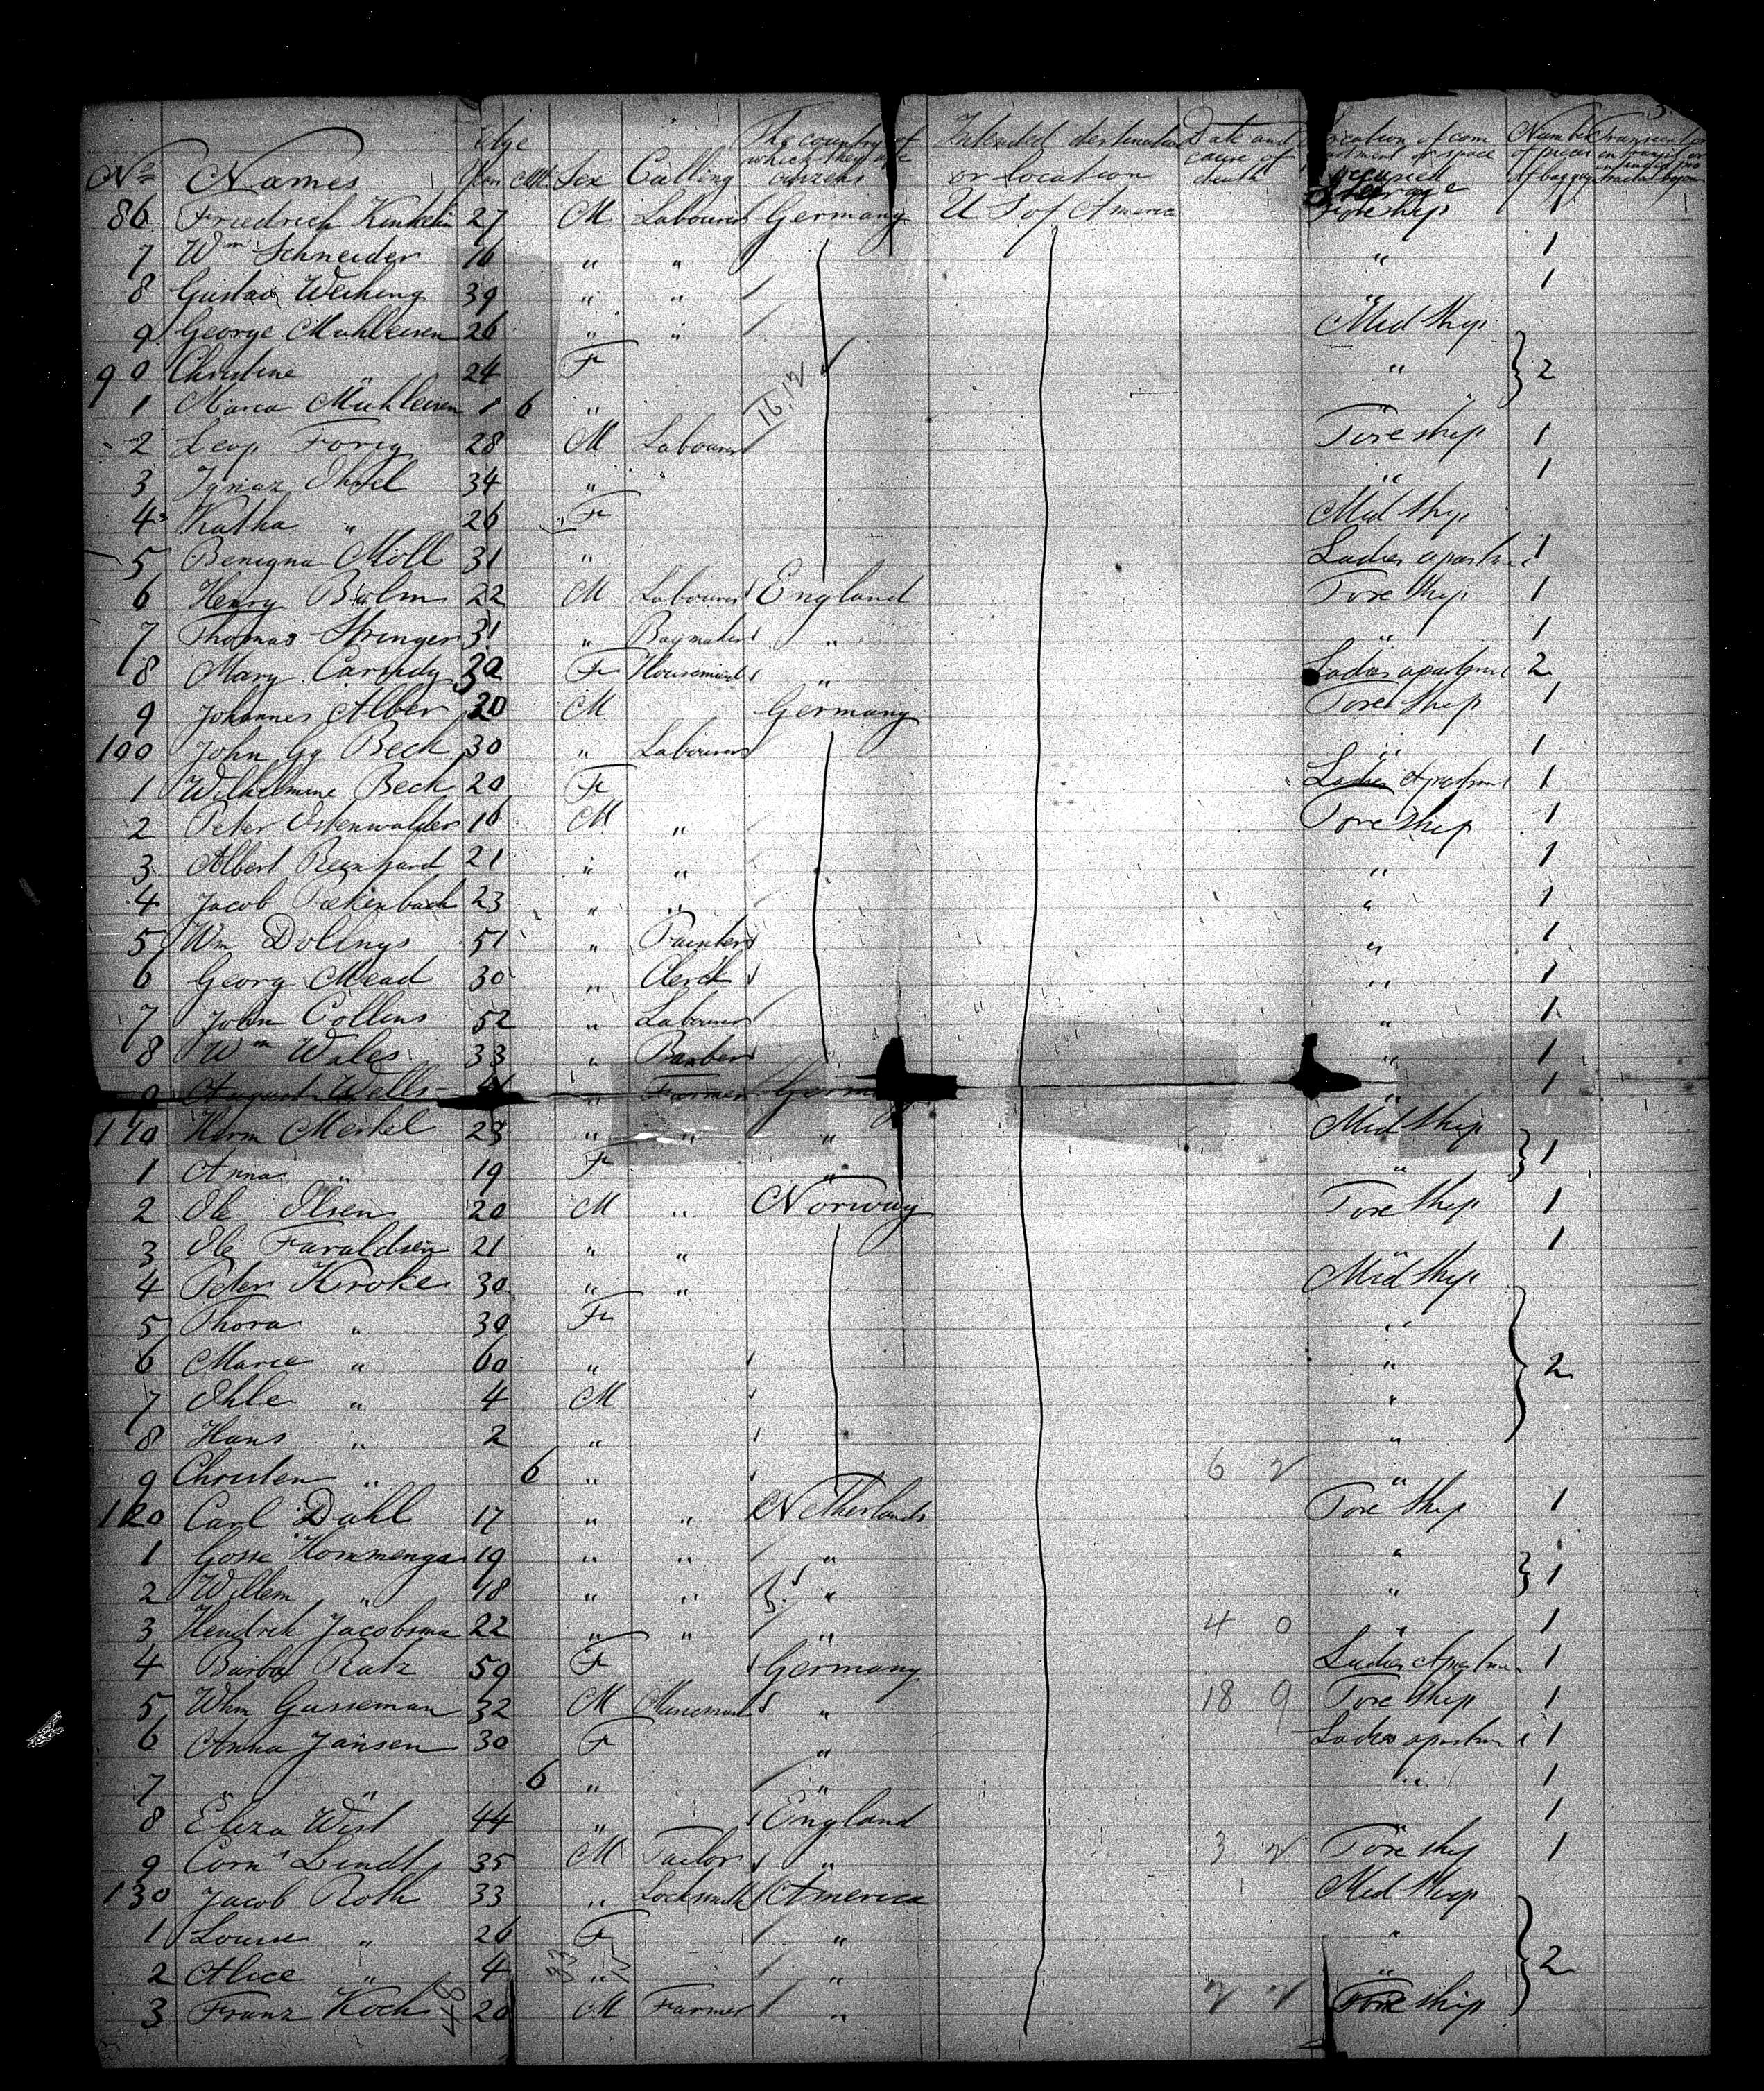 Nº Names Age Years Mth Sex Calling The country of which they are citizens Intended destination or location Date and cause of death Location of compartment or space occupied Number of pieces of baggage
Steerage
86 Friedrich 27 M Labourer Germany U S of America Foreship 1
7 Wm Schneider 16 " " " 1
8 Gustav Weihing 39 " " " 1
9 George Muhleisen 26 " " Mid Ship
90 Christine " 24 F " 2
1 Maria Muhleisen 1 6 " "
16 12
2 Leop 28 M Labourer Fore ship 1
3 34 " " " 1
4 Katha " 26 F Mid Ship
5 Benigna Moll 31 " Ladies apartm 1
6 Henry 22 M Labourer England Fore Ship 1
7 Thomas Stringer 31 " " " 1
8 Mary Cassidy F Housemaid " Ladies apartment 2
9 Johannes Alber 20 M Germany Fore Ship 1
100 John Gg Beck 30 " Labourer " 1
1 Wilhelmine Beck 20 F Ladies Apartment 1
2 Peter 16 M " Fore Ship 1
3 Albert Reinhard 21 " " " 1
4 Jacob 23 " " " 1
5 Wm Dollnys 51 " Painter " 1
6 Georg Mead 30 " Clerk " 1
7 John Collins 52 " Labourer " 1
8 Wm Wales 33 " Barber " 1
9 August Wells " Farmer Germany " 1
110 Herm Merkel 23 " " " Mid Ship
1 Anna " 19 F " " 1
2 Ole Olsen 20 M " Norway Fore Ship 1
3 Ole Faraldsen 21 " " " 1
4 Peter Kroke 30 " " Mid Ship
5 Thora " 30 F "
6 Marie " 60 " " 2
7 Ohle " 4 M "
8 Hans " 2 " "
9 Christen " 6 " 6 2 "
120 Carl Dahl 17 " " Netherlands Fore Ship 1
1 Gosse Hommenga 19 " " " "
2 Willem " 18 " " " " 1
3 Hendrik Jacobsma 22 " " " 4 0 " 1
4 Barba Ratz 59 F Germany Ladies Apartm 1
5 Whm Gusseman 32 M " 18 9 Fore Ship 1
6 Anna Jansen 30 F " Ladies apartm 1
7 " " 6 " " " 1
8 Eliza West 44 " England 1
9 Corns Lindt 35 M Tailor " 3 2 Fore ship 1
130 Jacob Roth 33 " Locksmith America Mid Ship
1 Louise " 26 F " "
2 Alice " 4 " " " 2
3 Franz Koch 20 M Farmer " 2 2 Fore ship
48